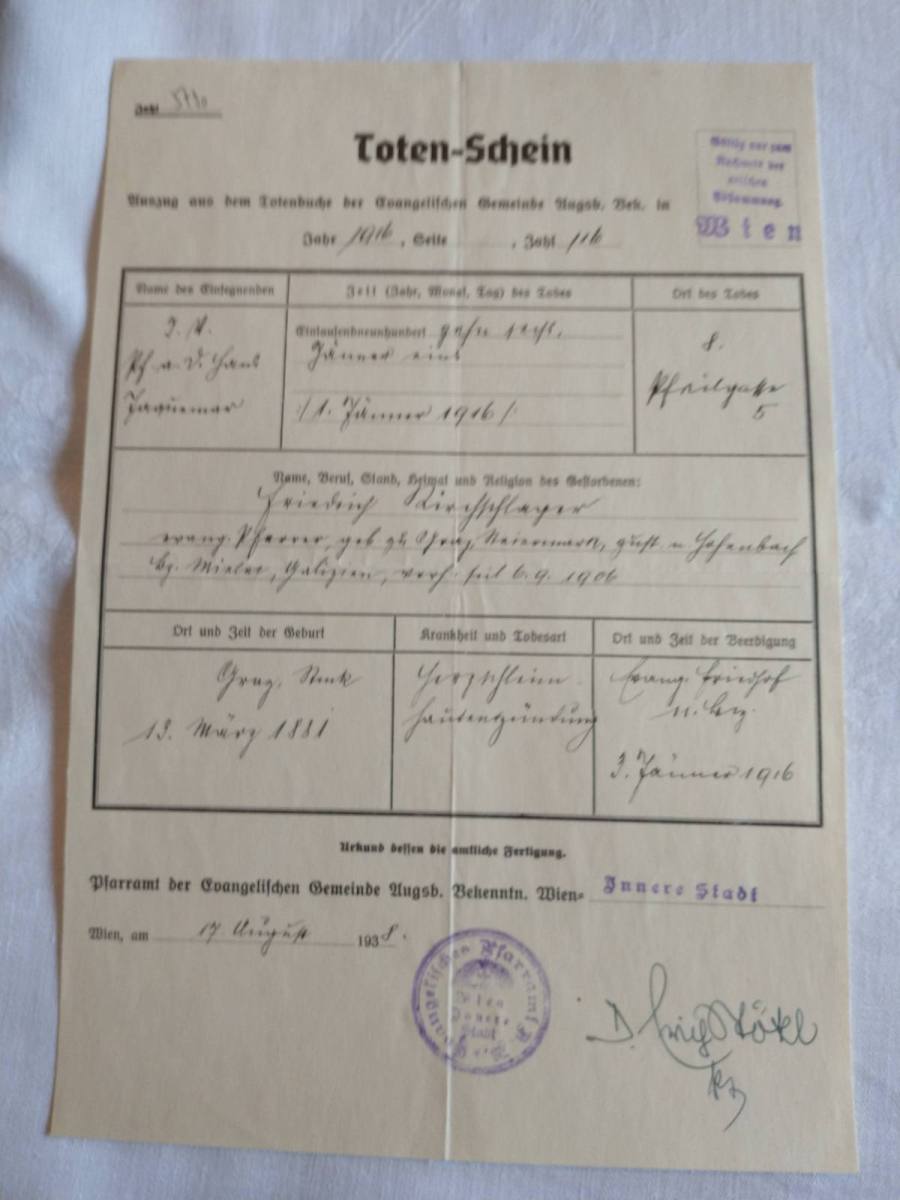 Zahl 5710
Toten-Schein
Gültig nur zum
Nachweis der
arischen
Abstammung.
Wien
Auszug aus dem Totenbuche der Evangelischen Gemeinde Augsb. Bek. in
Jahr 1916, Seite , Zahl 116
Name des Einsegnenden
Zeit (Jahr, Monat, Tag) des Todes
Ort des Todes
I. V.
Pf. a. D. Hans
Jaquemar
Eintausendneunhundert zehn sechs,
Jänner eins
/1. Jänner 1916/
8.
Pfeilgasse
5
Name, Beruf, Stand, Heimat und Religion des Gestorbenen:
Friedrich Kirchschlager
evang. Pfarrer, geb zu Graz, Steiermark, zust. n. Hohenbach
Bz. Mielec, Galizien, verh. seit 6.9. 1906
Ort und Zeit der Geburt
Krankheit und Todesart
Ort und Zeit der Beerdigung
Graz, Stmk
13. März 1881
Herz
hautentzündung
Evang. Friedhof
3. Jänner 1916
Urkund dessen die amtliche Fertigung.
Pfarramt der Evangelischen Gemeinde Augsb. Bekenntn. Wien- Innere Stadt
Wien, am 17 August 1938.
Evangelisches Pfarramt A.B.
Wien
Innere
Stadt
D. Erich Stökl